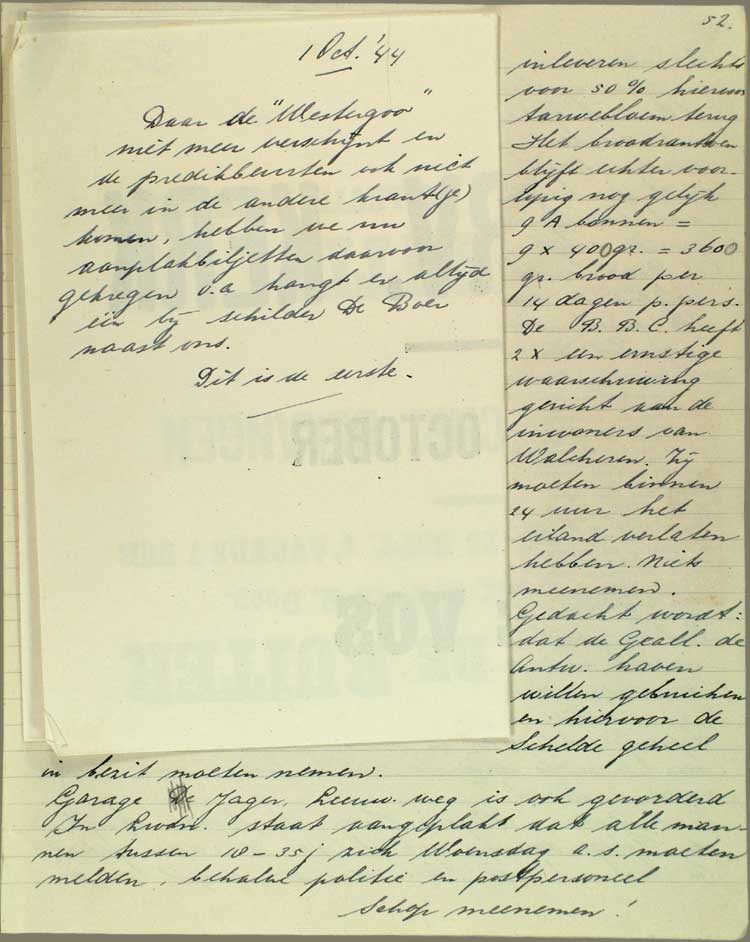 52.
1 Oct. '44
Daar de "Westergoo"
niet meer verschijnt en
de predikbeurten ook niet
meer in de andere krant(je)
komen, hebben we nu
aanplakbiljetten daarvoor
gekregen o.a hangt er altijd
één bij schilder De Boer
naast ons.
Dit is de eerste.
inleveren slechts
voor 50% hiervoor
tarwebloem terug
Het broodrantsoen
blijft echter voor-
lopig nog gelijk
9 A bonnen =
9 x 400gr. = 3600
gr. brood per
14 dagen p. pers.
De B.B.C. heeft
2 x een ernstige
waarschuwing
gericht aan de
inwoners van
Walcheren. Zij
moeten binnen
24 uur het
eiland verlaten
hebben. Niets
meenemen.
Gedacht wordt:
dat de Geall. de
Antw. haven
willen gebruiken
en hiervoor de
Schelde geheel
in bezit moeten nemen.
Garage Jager, Leeuw. weg is ook gevorderd
In Lwdn. staat aangeplakt dat alle man-
nen tussen 18-35 j zich Woensdag a.s. moeten
melden, behalve politie en postpersoneel
Schop meenemen!
OCTOBER
VOS